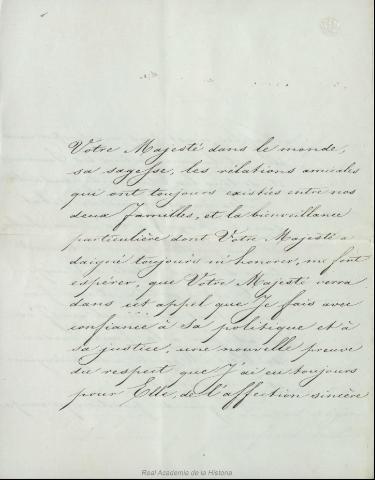 Votre Majesté dans le monde,
sa sagesse, les rélations amicales
qui ont toujours existées entre nos
deux Familles, et la bienveillance
particulière dont Votre Majesté a
daigné toujours m'honorer, me font
espérer, que Votre Majesté verra
dans cet appel que Je fais avec
confiance à Sa politique et à
sa justice, une nouvelle preuve
du respect que J'ai eu toujours
pour Elle, de l'affection sincère
Real Academia de la Historia